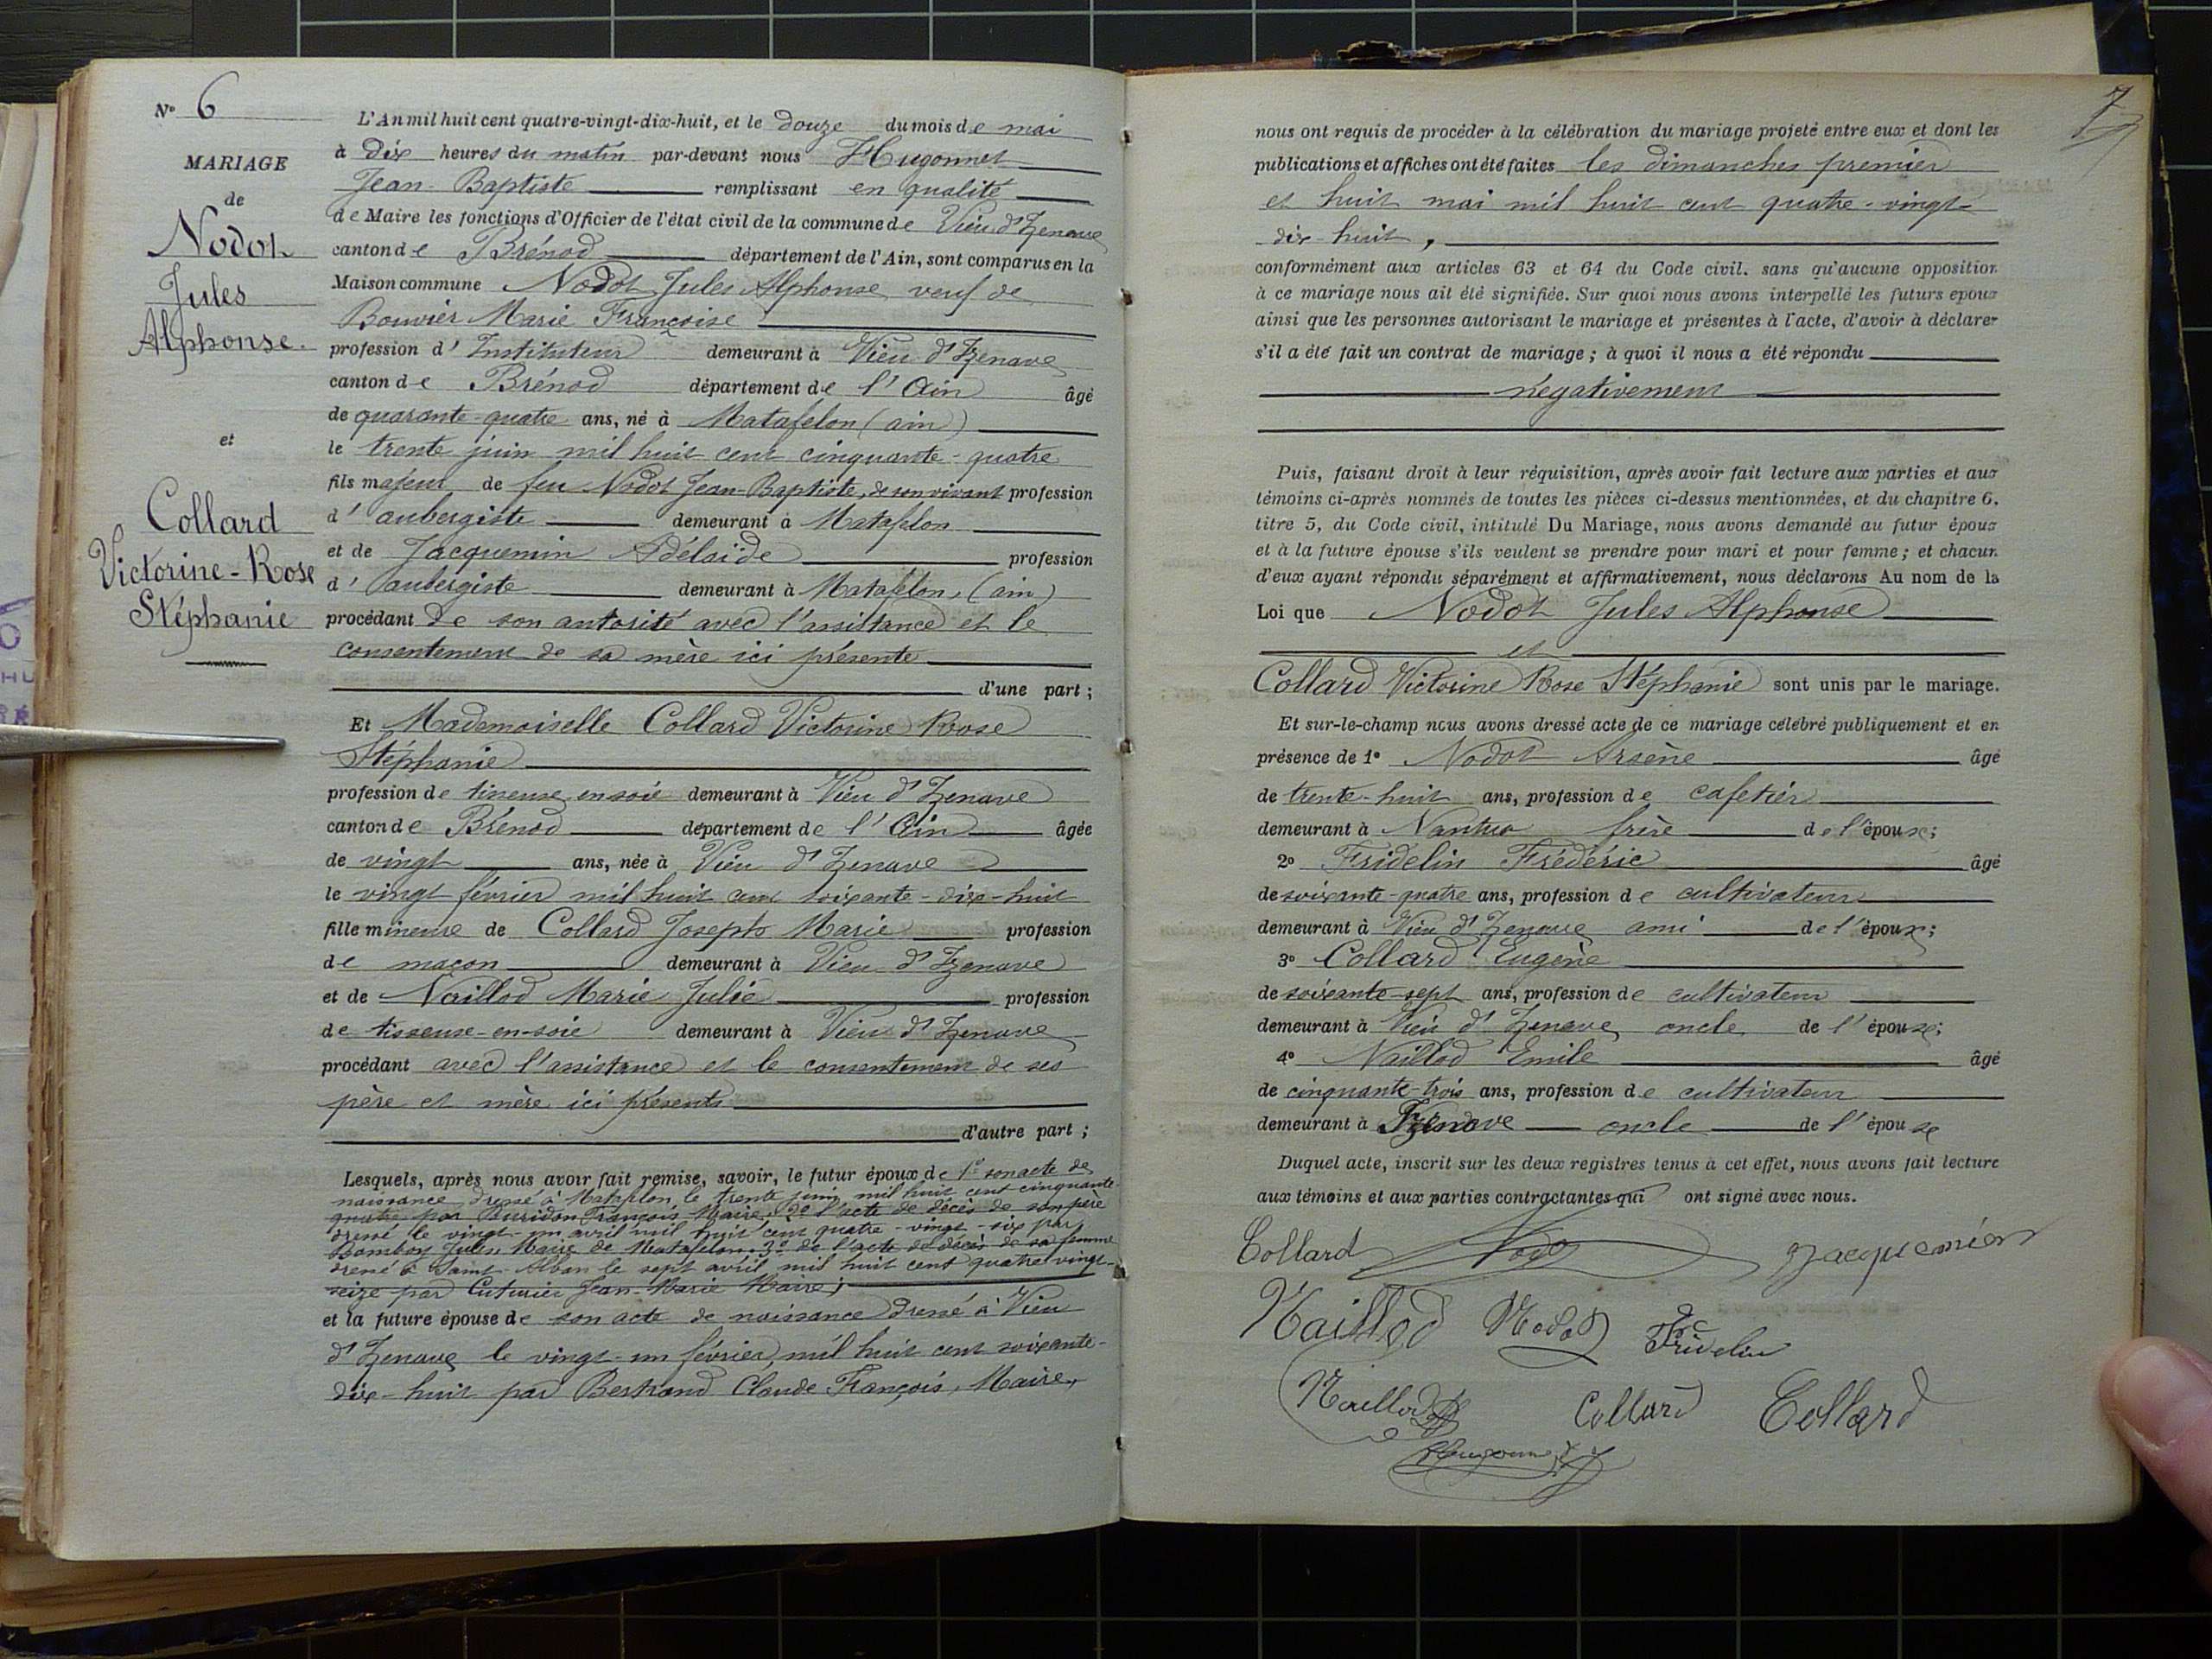 N° 6
MARIAGE
de
Nodot
Jules
Alphonse.
et
Collard
Victorine-Rose
Stéphanie
L'An mil huit cent quatre-vingt-dix-huit, et le douze du mois de mai
à Dix heures du matin par-devant nous Hugonnet
Jean-Baptiste remplissant en qualité
de Maire les fonctions d'Officier de l'état civil de la commune de Vieu d'Izenave
canton de Brénod département de l'Ain, sont comparus en la
Maison commune Nodot Jules Alphonse veuf de
Bouvier Marie Françoise
profession d'Instituteur demeurant à Vieu d'Izenave
canton de Brénod département de l'Ain âgé
de quarante-quatre ans, né à Matafelon (ain)
le trente juin mil huit cent cinquante-quatre
fils majeur de feu Nodot Jean-Baptiste, de son vivant profession
d'aubergiste demeurant à Matafelon
et de Jacquemin Adélaïde profession
d'aubergiste demeurant à Matafelon, (ain)
procédant de son autorité avec l'assistance et le
consentement de sa mère ici présente
d'une part ;
Et Mademoiselle Collard Victorine Rose
Stéphanie
profession de tisseuse en soie demeurant à Vieu d'Izenave
canton de Brénod département de l'Ain âgée
de vingt ans, née à Vieu d'Izenave
le vingt février mil huit cent soixante-dix-huit
fille mineure de Collard Joseph Marie profession
de maçon demeurant à Vieu d'Izenave
et de Naillod Marie Julie profession
de tisseuse-en-soie demeurant à Vieu d'Izenave
procédant avec l'assistance et le consentement de ses
père et mère ici présents
d'autre part ;
Lesquels, après nous avoir fait remise, savoir, le futur époux de 1° son acte de
naissance dressé à Matafelon le trente juin mil huit cent cinquante-
quatre par Buridon François Maire; 2° de l'acte de décès de son père
dressé le vingt-un avril mil huit cent quatre-vingt-six par
Bomboy Jules Maire de Matafelon. 3° de l'acte de décès de sa femme
dressé à Saint-Alban le sept avril mil huit cent quatre-vingt-
seize par Cuturier Jean-Marie Maire;
et la future épouse de son acte de naissance dressé à Vieu
d'Izenave le vingt-un février, mil huit cent soixante-
dix-huit par Bertrand Claude François, Maire,
7
nous ont requis de procéder à la célébration du mariage projeté entre eux et dont les
publications et affiches ont été faites les dimanches premier
et huit mai mil huit cent quatre-vingt-
dix-huit,
conformément aux articles 63 et 64 du Code civil. sans qu'aucune opposition
à ce mariage nous ait été signifiée. Sur quoi nous avons interpellé les futurs epoux
ainsi que les personnes autorisant le mariage et présentes à l'acte, d'avoir à déclarer
s'il a été fait un contrat de mariage ; à quoi il nous a été répondu
négativement
Puis, faisant droit à leur réquisition, après avoir fait lecture aux parties et aux
témoins ci-après nommés de toutes les pièces ci-dessus mentionnées, et du chapitre 6,
titre 5, du Code civil, intitulé Du Mariage, nous avons demandé au futur époux
et à la future épouse s'ils veulent se prendre pour mari et pour femme ; et chacun
d'eux ayant répondu séparément et affirmativement, nous déclarons Au nom de la
Loi que Nodot Jules Alphonse
et
Collard Victorine Rose Stéphanie sont unis par le mariage.
Et sur-le-champ nous avons dressé acte de ce mariage célébré publiquement et en
présence de 1° Nodot Arsène âgé
de trente-huit ans, profession de cafetier
demeurant à Nantua frère de l'époux;
2° Fridelin Frédéric âgé
de soixante-quatre ans, profession de cultivateur
demeurant à Vieu d'Izenave ami de l'époux;
3° Collard Eugène
de soixante-sept ans, profession de cultivateur
demeurant à Vieu d'Izenave oncle de l'épouse;
4° Naillod Emile âgé
de cinquante-trois ans, profession de cultivateur
demeurant à Izenave oncle de l'épouse
Duquel acte, inscrit sur les deux registres tenus à cet effet, nous avons fait lecture
aux témoins et aux parties contractantes qui ont signé avec nous.
Collard Nodot Jacquemin
Naillod Nodot Fridelin
Naillod Collard Collard
Hugonnet